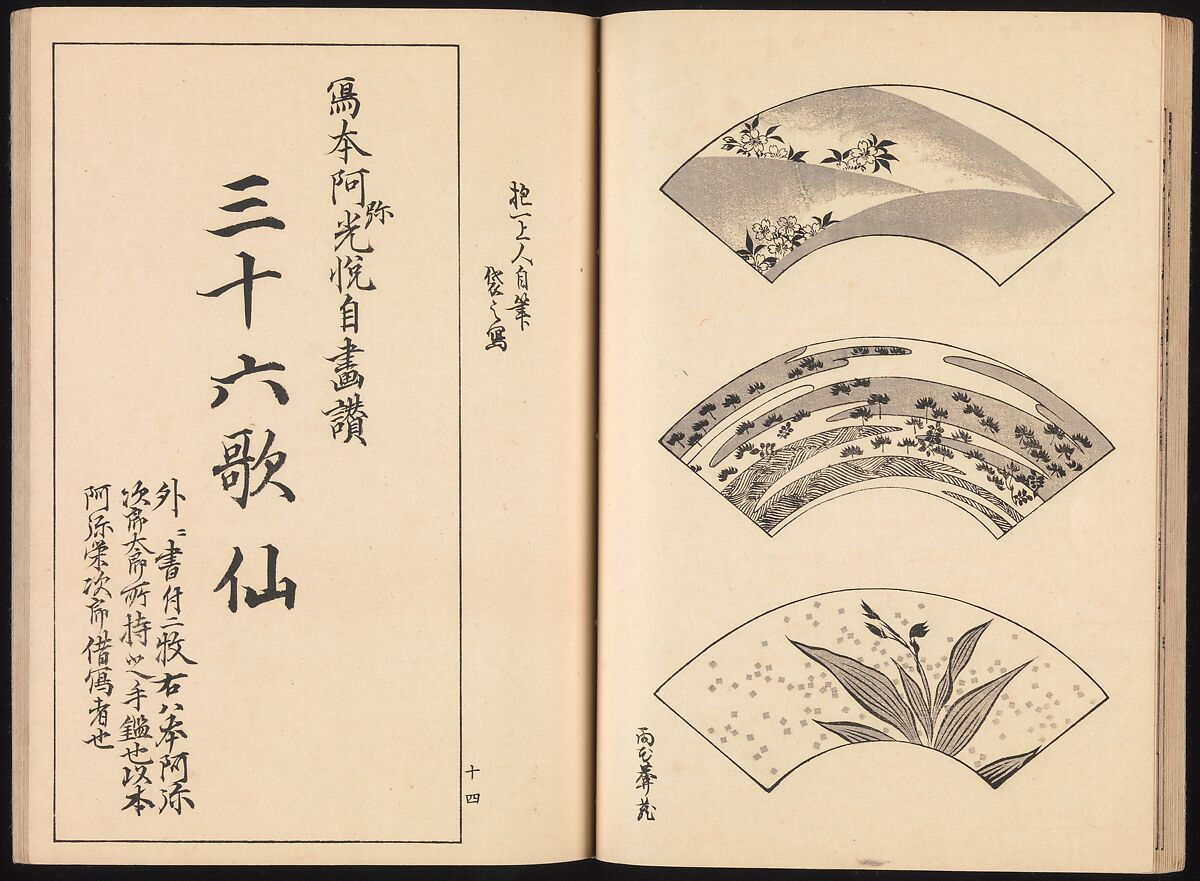 雨花葊蔵
抱一上人自筆
袋之寫
十四
寫本阿弥光悦自畫讃
三十六歌仙
外ニ書付二枚右ハ本阿弥
次郎太郎所持之手鑑也以本
阿弥栄次郎借寫者也